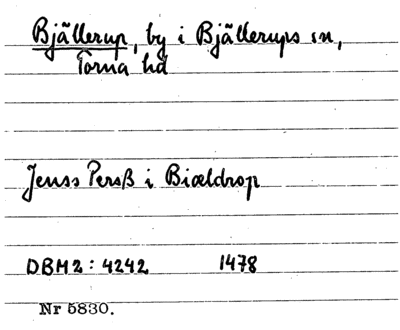 Bjällerup, by i Bjällerups sn,
Torna hd
Jenss Persß i Biældrop
DBM2: 4242 1478
Nr 5830.